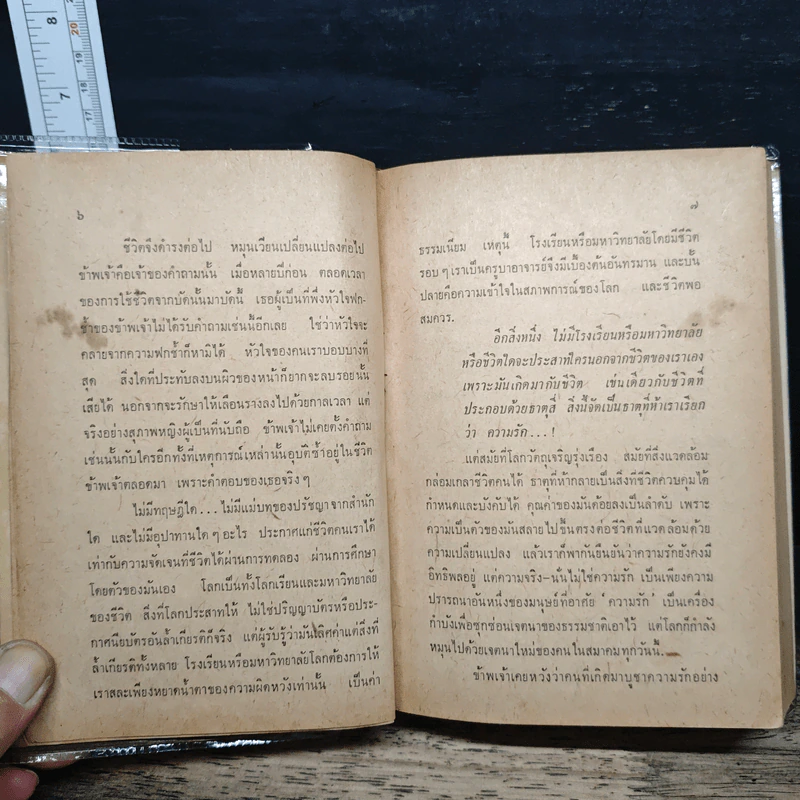 8
20
19
7
18
17
๖
ชีวิตจึงดำรงต่อไป หมุนเวียนเปลี่ยนแปลงต่อไป
ข้าพเจ้าคือเจ้าของคำถามนั้น เมื่อหลายปีก่อน ตลอดเวลา
ของการใช้ชีวิตจากบัดนั้นมาบัดนี้ เธอผู้เป็นที่พึ่งหัวใจฟก-
ช้ำของข้าพเจ้าไม่ได้รับคำถามเช่นนี้อีกเลย ใช่ว่าหัวใจจะ
คลายจากความฟกช้ำก็หามิได้ หัวใจของคนเราบอบบางที่
สุด สิ่งใดที่ประทับลงบนผิวของหน้าก็ยากจะลบรอยนั้น
เสียได้ นอกจากจะรักษาให้เลือนรางลงไปด้วยกาลเวลา แต่
จริงอย่างสุภาพหญิงผู้เป็นที่นับถือ ข้าพเจ้าไม่เคยตั้งคำถาม
เช่นนั้นกับใครอีกทั้งที่เหตุการณ์เหล่านั้นอุบัติซ้ำอยู่ในชีวิต
ข้าพเจ้าตลอดมา เพราะคำตอบของเธอจริง ๆ
ไม่มีทฤษฎีใด... ไม่มีแม่บทของปรัชญาจากสำนัก
ใด และไม่มีอุปาทานใด ๆ อะไร ประกาศแก่ชีวิตคนเราได้
เท่ากับความจัดเจนที่ชีวิตได้ผ่านการทดลอง ผ่านการศึกษา
โดยตัวของมันเอง โลกเป็นทั้งโลกเรียนและมหาวิทยาลัย
ของชีวิต สิ่งที่โลกประสาทให้ ไม่ใช่ปริญญาบัตรหรือประ-
กาศนียบัตรอันล้ำเกียรติก็จริง แต่ผู้รับรู้ว่ามันเลิศค่าแต่สิ่งที่
ล้ำเกียรติทั้งหลาย โรงเรียนหรือมหาวิทยาลัยโลกต้องการให้
เราสละเพียงหยาดน้ำตาของความผิดหวังเท่านั้น เป็นค่า
๗
ธรรมเนียม เหตุนี้ โรงเรียนหรือมหาวิทยาลัยโดยมีชีวิต
รอบ ๆ เราเป็นครูบาอาจารย์จึงมีเบื้องต้นอันทรมาน และบั้น
ปลายคือความเข้าใจในสภาพการณ์ของโลก และชีวิตพอ
สมควร.
อีกสิ่งหนึ่ง ไม่มีโรงเรียนหรือมหาวิทยาลัย
หรือชีวิตใดจะประสาทให้ใครนอกจากชีวิตของเราเอง
เพราะมันเกิดมากับชีวิต เช่นเดียวกับชีวิตที่
ประกอบด้วยธาตุสี่ สิ่งนี้จัดเป็นธาตุที่ห้าเราเรียก
ว่า ความรัก...!
แต่สมัยที่โลกวัตถุเจริญรุ่งเรือง สมัยที่สิ่งแวดล้อม
กล่อมเกลาชีวิตคนได้ ธาตุที่ห้ากลายเป็นสิ่งที่ชีวิตควบคุมได้
กำหนดและบังคับได้ คุณค่าของมันด้อยลงเป็นลำดับ เพราะ
ความเป็นตัวของมันสลายไป ขึ้นตรงต่อชีวิตที่แวดล้อมด้วย
ความเปลี่ยนแปลง แล้วเราก็พากันยืนยันว่าความรักยังคงมี
อิทธิพลอยู่ แต่ความจริง—นั่นไม่ใช่ความรัก เป็นเพียงความ
ปรารถนาอันหนึ่งของมนุษย์ที่อาศัย ‘ความรัก’ เป็นเครื่อง
กำบังเพื่อซุกซ่อนเจตนาของธรรมชาติเอาไว้ แต่โลกก็กำลัง
หมุนไปด้วยเจตนาใหม่ของคนในสมาคมทุกวันนี้.
ข้าพเจ้าเคยหวังว่าคนที่เกิดมาบูชาความรักอย่าง